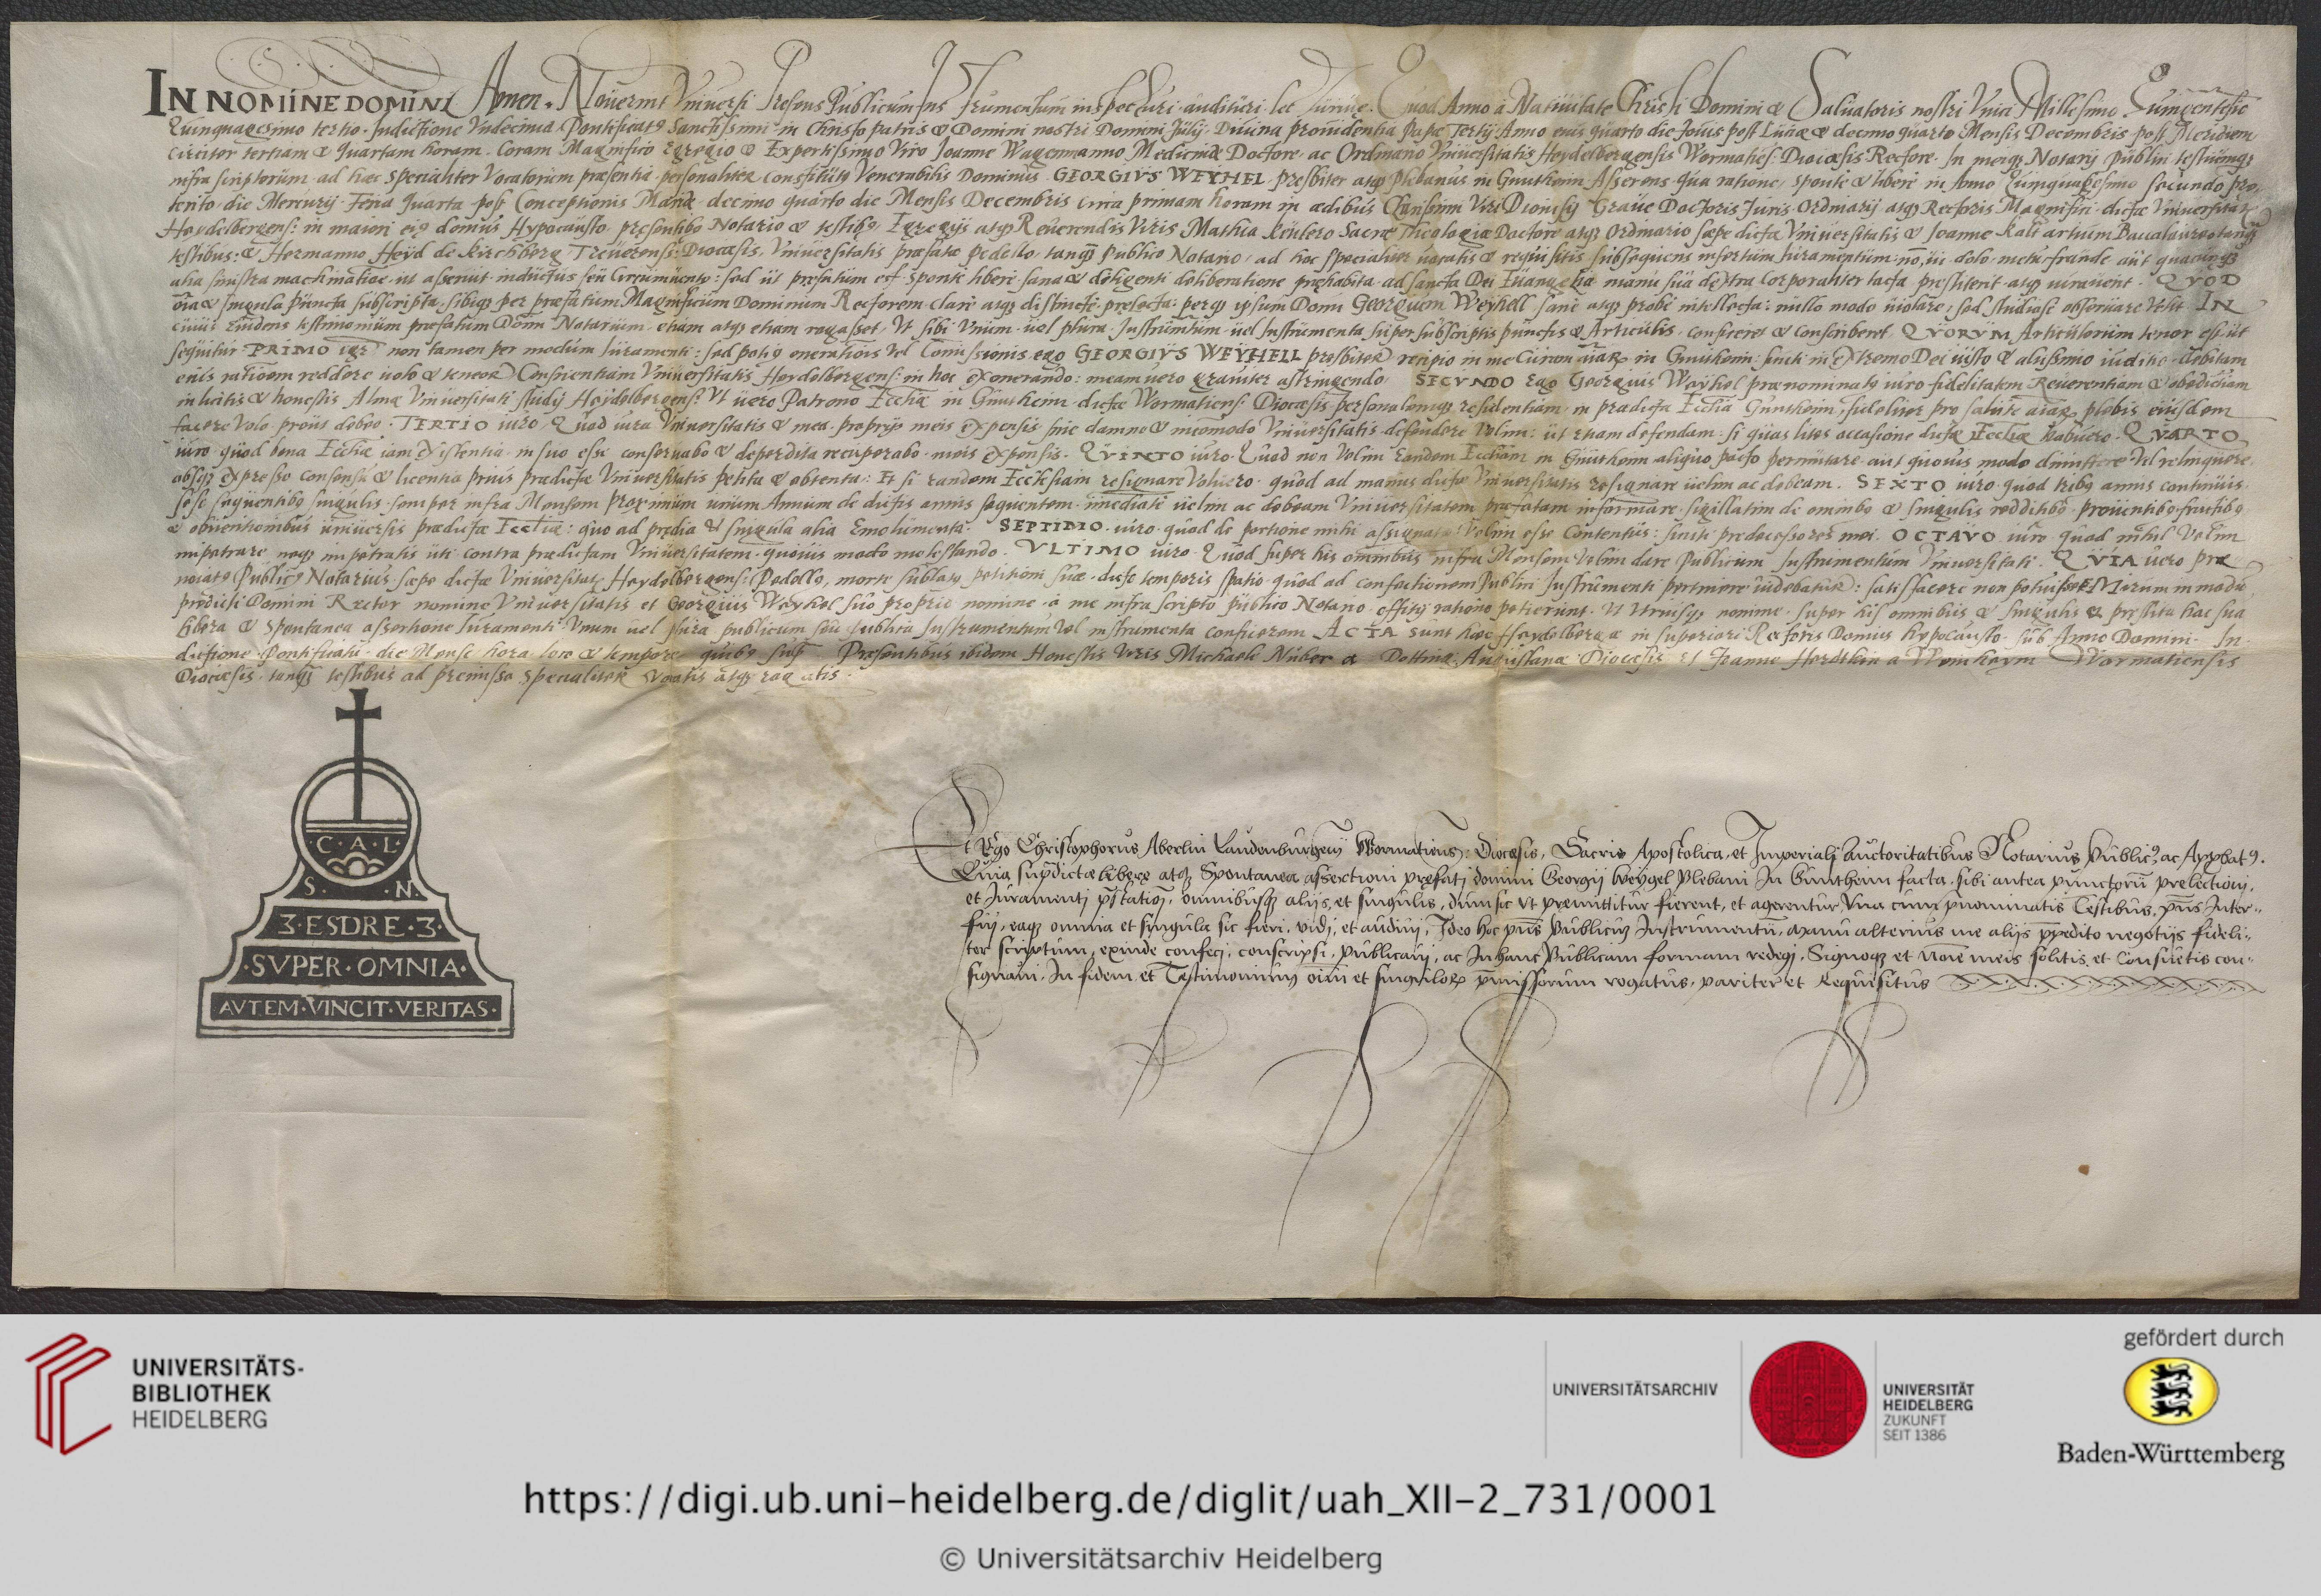 IN NOMINE DOMINI Amen. Noverint Vniuersi Presens Publicum Instrumentum inspecturi audituri Quod Anno à Natiuitate Christi Domini & Saluatoris nostri Vnici Millesimo Quingentesimo
Quinquagesimo tertio. Indictione Vndecima Pontificatꝰ Sanctissimi in Christo patris & Domini nostri Domini Iulij Diuina prouidentia Papæ Tertij Anno eius quarto die Iouis post Luciæ & decimo quarto Mensis Decembris post Meridiem
circiter tertiam & quartam horam. Coram Magnifico Egregio & Expertissimo Viro Joanne Wagenmanno Medicinæ Doctore ac Ordinario Vniuersitatis Heydelbergensis Diocesis Rectore. In meiqꝫ Notarij publici testiumqꝫ
infra scriptorum ad hæc specialiter Vocatorum præsentia personaliter constitutꝰ Venerabilis Dominus GEORGIVS WEYHEL presbiter atqꝫ Plebanus in Guntheim Asserens qua ratione, sponte & libere in Anno Quinquagesimo secundo præ-
terito die Mercurij Feria quarta post Conceptionis Mariæ decimo quarto die Mensis Decembris circa primam horam in ædibus Viri Dionisij Graue Doctoris Juris Ordinarij atqꝫ Rectoris Magnifici dictæ Vniuersitatis
Heydelbergens: in maiori eiꝰ domus Hypocausto præsentibꝰ Notario & testibꝰ Egregijs atqꝫ Reuerendis Viris Mathia Keulero Sacræ Theologiæ Doctore atqꝫ Ordinario sæpe dictæ Vniuersitatis & Joanne Kali artium Baccalaureo tanqꝫ
testibus: & Hermanno Heyd de Kirchberg Treuerens: Diocæsis, Vniuersitatis præfatæ pedello, tanqꝫ Publico Notario, ad hoc specialiter uocatis & requisitis subsequens insertum iuramentum: nō ui dolo metu fraude aut quacunqꝫ
alia sinistra machinatiōe ut asseruit inductus seu circumuentꝰ: sed ut præfatum est sponte libere sana & diligenti deliberatione præhabita ad sancta Dei Euangelia manu sua dextra corporaliter tacta prestiterit atqꝫ iurauerit. QVOD
oīa & singula puncta subscripta sibiqꝫ per præfatum Magnificum Dominum Rectorem clare atqꝫ distincte prelecta: perqꝫ ipsum Domi Georgium Weyhell sane atqꝫ probe intellecta: nullo modo uiolare, sed studiose obseruare Velit. IN
cuius euidens testimonium præfatum Domi Notarium etiam atqꝫ etiam rogasset Vt sibi Vnum uel plura Instrumentum uel Instrumenta super subscriptis punctis & Articulis conficeret & conscriberet. QVORVM Articulorum tenor est ut
sequitur PRIMO igr̄ non tamen per modum iuramenti: sed potiꝰ onerationis Vel Comissionis ego GEORGIVS WEYHELL presbiter recipio in me Curam aīarꝫ in Guntheim: sicuti in extremo Dei iusto & altissimo iuditio debitam
eius rationem reddere uolo & teneor Conscientiam Vniuersitatis Heydelbergens: in hoc exonerando: meam uero grauiter astringendo SECVNDO ego Georgius Weyhel prænominatꝰ iuro fidelitatem Reuerentiam & obedientiam
in licitis & honestis Almæ Vniuersitati studij Heydelbergens: Vt uero Patrono Ecclīæ in Guntheim dictæ Wormatiens: Diocæsis personalemqꝫ residentiam in prædicta Ecclīa Guntheim, fideliter pro salute aīarꝫ plebis eiusdem
facere Volo prout debeo. TERTIO iuro, Quod iura Vniuersitatis & mea proprijs meis expensis sine damno & incomodo Vniuersitatis defendere Velim: ut etiam defendam si quas lites occasione dictæ Ecclīæ habuero. QVARTO
iuro quod bona Ecclīæ iam existentia in suo esse conseruabo & deperdita recuperabo meis expensis. QVINTO iuro Quod non Velim eandem Ecclīam in Guntheim aliquo pacto permutare aut quouis modo dimittere Vel relinquere
absqꝫ expresso consensu & licentia prius prædictæ Vniuersitatis petita & obtenta: Et si eandem Ecclesiam resignare Voluero quod ad manus dictæ Vniuersitatis resignare uelim ac debeam. SEXTO iuro quod tribꝰ annis continuis
sese sequentibꝰ singulis semper infra Mensem proximum unum Annum de dictis annis sequentem immediate uelim ac debeam Vniuersitatem præfatam informare sigillatim de omnibꝰ & singulis redditibꝰ prouentibꝰ fructibꝰ
& obuentionibus uniuersis prædictæ Ecclīæ: quo ad prædia & singula alia Emolumenta. SEPTIMO iuro quod de portione mihi assignata Velim esse contentus: sicuti predecessores mei. OCTAVO iuro quod nihil Velim
impetrare neqꝫ impetratis uti contra prædictam Vniuersitatem quouis modo molestando. VLTIMO iuro Quod super his omnibus infra Mensem Velim dare Publicum Instrumentum Vniuersitati. QVIA uero præ
Publicꝰ Notarius sæpe dictæ Vniuersitatis Heydelbergens: Pedellꝰ, morte sublatꝰ, petitioni suæ dicto temporis spatio quod ad confectionem Publici Instrumenti pertinere uidebatur: satisfacere non potuisset
predicti Domini Rector nomine Vniuersitatis et Georgius Weyhel suo proprio nomine à me infra scripto publico Notario officij ratione petierunt Vt Vtriusqꝫ nomine super his omnibus & singulis & prestita hac sua
libera & spontanea assertione Iuramenti Vnum uel plura publicum seu publica Instrumentum Vel instrumenta conficerem ACTA sunt hæc Heydelbergæ in superiori Rectoris Domus hypocausto sub Anno Domini In-
dictione Pontificatu die Mense hora loco & tempore quibꝰ supr̄ Præsentibus ibidem Honestis Viris Michaele Nuber Augustanæ Diocæsis et Joanne a Wormatiensis
Diocæsis tanqꝫ testibus ad premissa specialiter uocatis atqꝫ rogatis.
·C·A·L·
S. .N.
3·ESDRE·3·
·SVPER·OMNIA·
AVTEM·VINCIT·VERITAS·
Et Ego Christophorus Aberlin Laudenburgen̄ Wormatiens: Diocæsis, Sacris Apostolica, et Imperiali Auctoritatibus Notarius Publicꝰ, ac Approbatꝰ.
Quia supradictæ liberę atqꝫ Spontaneæ assertioni pręfati domini Georgij Weyhgel Plebani In Guntheim facta, sibi antea punctorū prelectioni,
et Iuramenti p̄statioi, omnibusqꝫ alijs, et singulis, dum sic vt premittitur fierent, et agerentur, Vna cum prenominatis Testibus, pn̄s Inter-
fui, eaqꝫ omnia et singula sic fieri, vidi, et audiui, Ideo hoc pn̄s Publicum Instrumentū, manu alterius me alijs prepedito negotijs fideli-
ter scriptum, exinde confeci, conscripsi, Publicaui, ac In hanc Publicam formam redegi, Signoqꝫ et Noīe meis solitis et Consuetis con-
signaui, In fidem et Testimonium oīm et singulorꝫ p̄missorum rogatus, pariter et Requisitus
UNIVERSITÄTS-
BIBLIOTHEK
HEIDELBERG
UNIVERSITÄTSARCHIV
UNIVERSITÄT
HEIDELBERG
ZUKUNFT
SEIT 1386
gefördert durch
Baden-Württemberg
https://digi.ub.uni-heidelberg.de/diglit/uah_XII-2_731/0001
© Universitätsarchiv Heidelberg